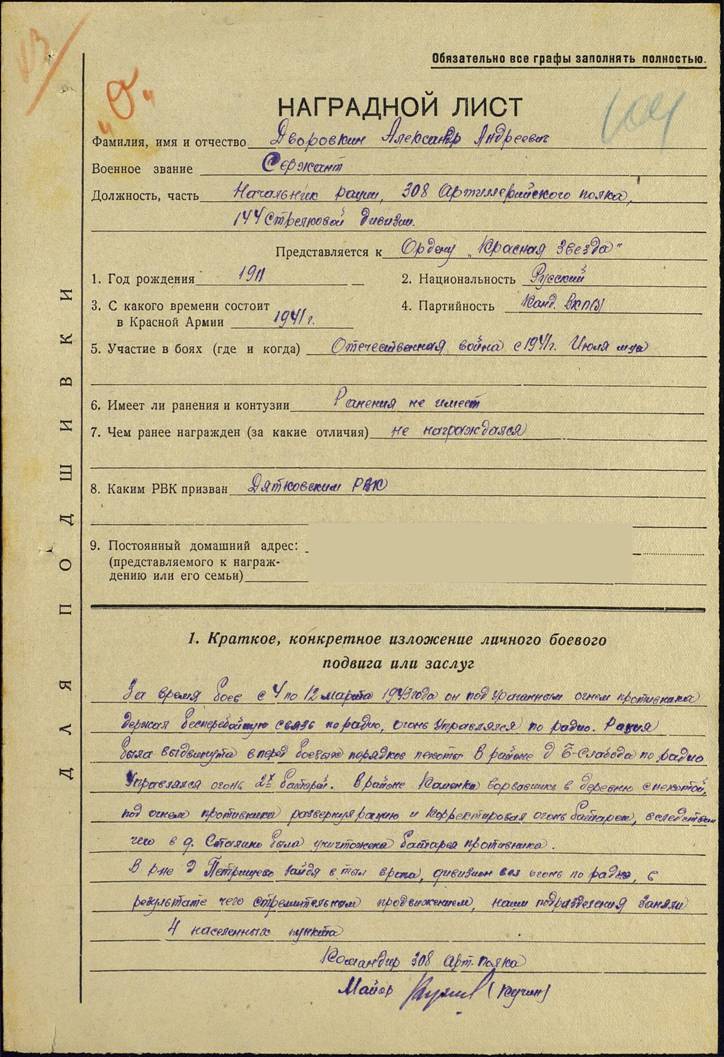 Обязательно все графы заполнять полностью.
"О"
НАГРАДНОЙ ЛИСТ
Фамилия, имя и отчество Дворовкин Александр Андреевич
Военное звание Сержант
Должность, часть Начальник рации, 308 Артиллерийского полка,
144 Стрелковой дивизии.
Представляется к Ордену „Красная звезда"
1. Год рождения 1911
2. Национальность Русский
3. С какого времени состоит
в Красной Армии 1941г.
4. Партийность Канд. ВКП(б)
5. Участие в боях (где и когда) Отечественная война с 1941г. Июля м-ца
6. Имеет ли ранения и контузии Ранения не имеет
7. Чем ранее награжден (за какие отличия) не награждался
8. Каким РВК призван Дятьковским РВК
9. Постоянный домашний адрес:
(представляемого к награж-
дению или его семьи)
1. Краткое, конкретное изложение личного боевого
подвига или заслуг
За время боев с 4 по 12 марта 1943 года он под ураганным огнем противника
держал бесперебойную связь по радио, огонь управлялся по радио. Рация
была выдвинута вперед боевых порядков пехоты. В районе д. Б-Слабода по радио
управлялся огонь 2х батарей. В районе Каменка ворвавшись в деревню с пехотой,
под огнем противника развернул рацию и корректировал огонь батареи, вследствии
чего в д. Сталино была уничтожена батарея противника.
В р-не д Петрищево зайдя в тыл врага, дивизион вел огонь по радио, в
результате чего стремительным продвижением, наши подразделения заняли
4 населенных пункта
Командир 308 Арт. полка
Майор (Кучин)
ДЛЯ ПОДШИВКИ